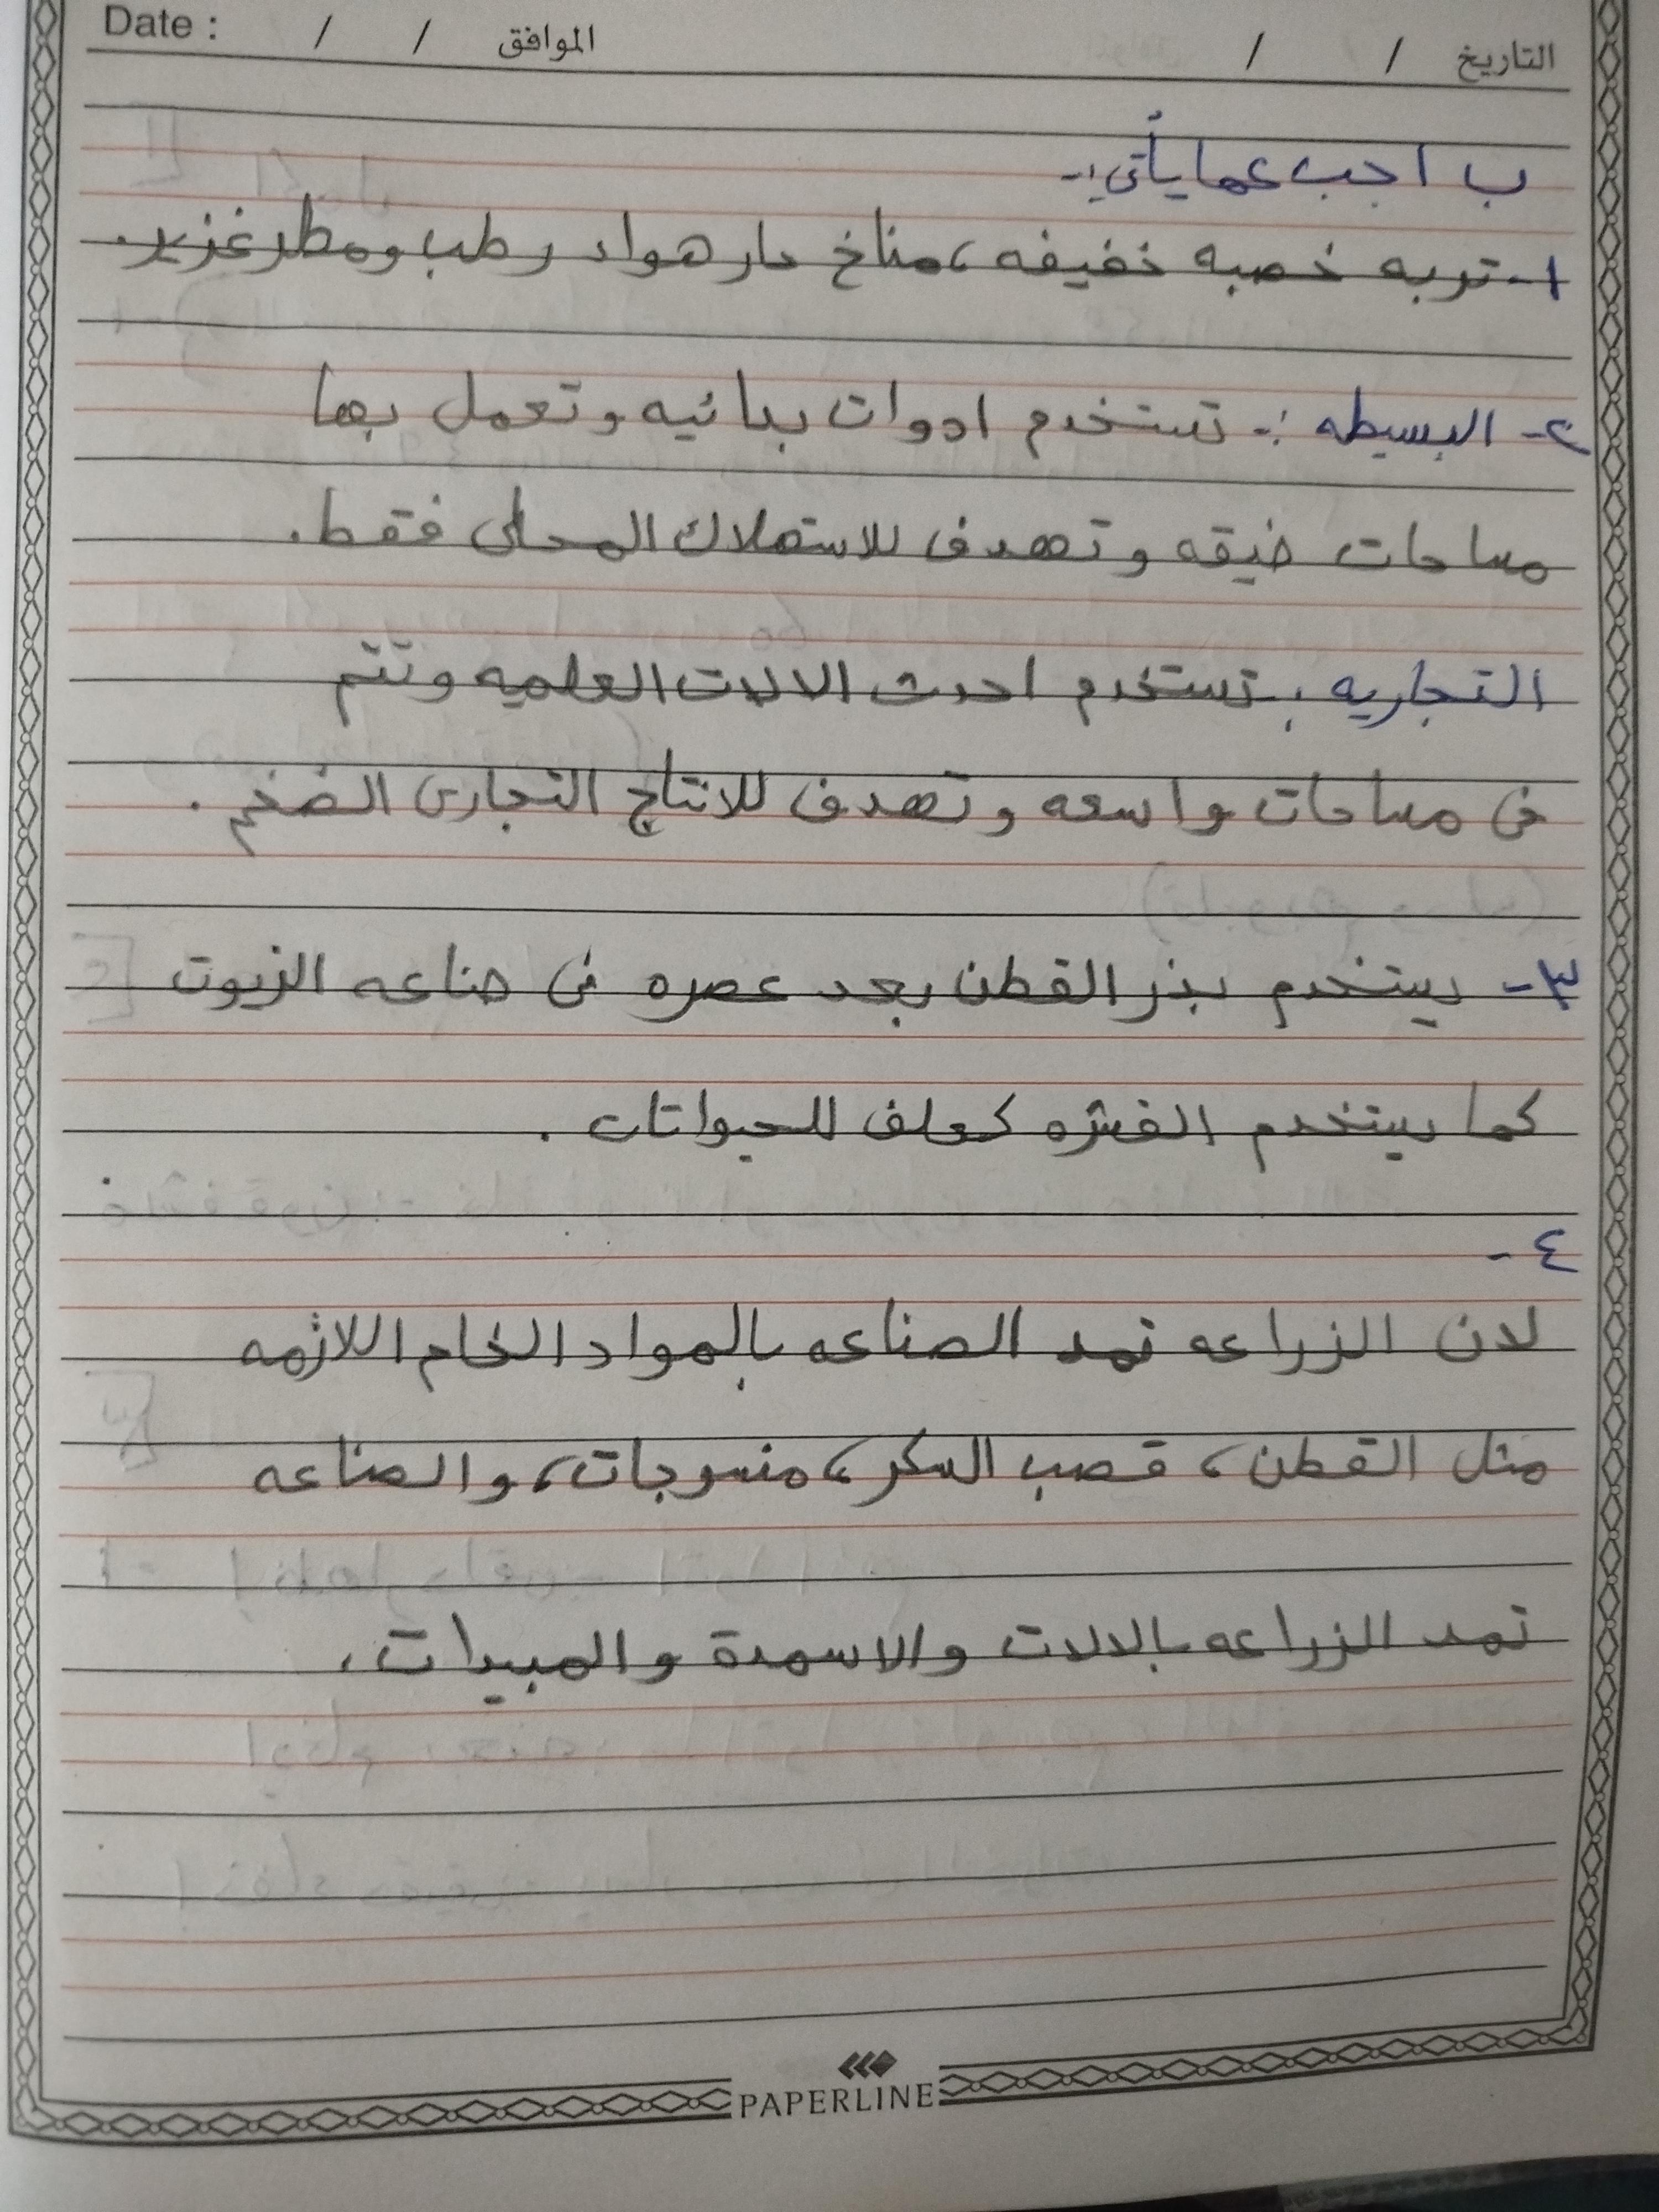 Date :    /    /    الموافق    /    /    التاريخ
ب اجب عما يأتي :-
١- تربه خصبه خفيفه ، مناخ حار هواء رطب ومطر غزير .
٢- البسيطه :- تستخدم ادوات بدائيه وتعمل بها
مساحات ضيقه وتهدف للاستهلاك المحلى فقط .
التجاريه :- تستخدم احدث الالات العلميه وتتم
فى مساحات واسعه وتهدف للانتاج التجارى الضخم .
٣- يستخدم بذر القطن بعد عصره فى صناعه الزيوت
كما يستخدم القشره كعلف للحيوانات .
٤-
لان الزراعه تمد الصناعه بالمواد الخام اللازمه
مثل القطن ، قصب السكر ، منسوجات ، والصناعه
تمد الزراعه بالالات والاسمدة والمبيدات .
PAPERLINE